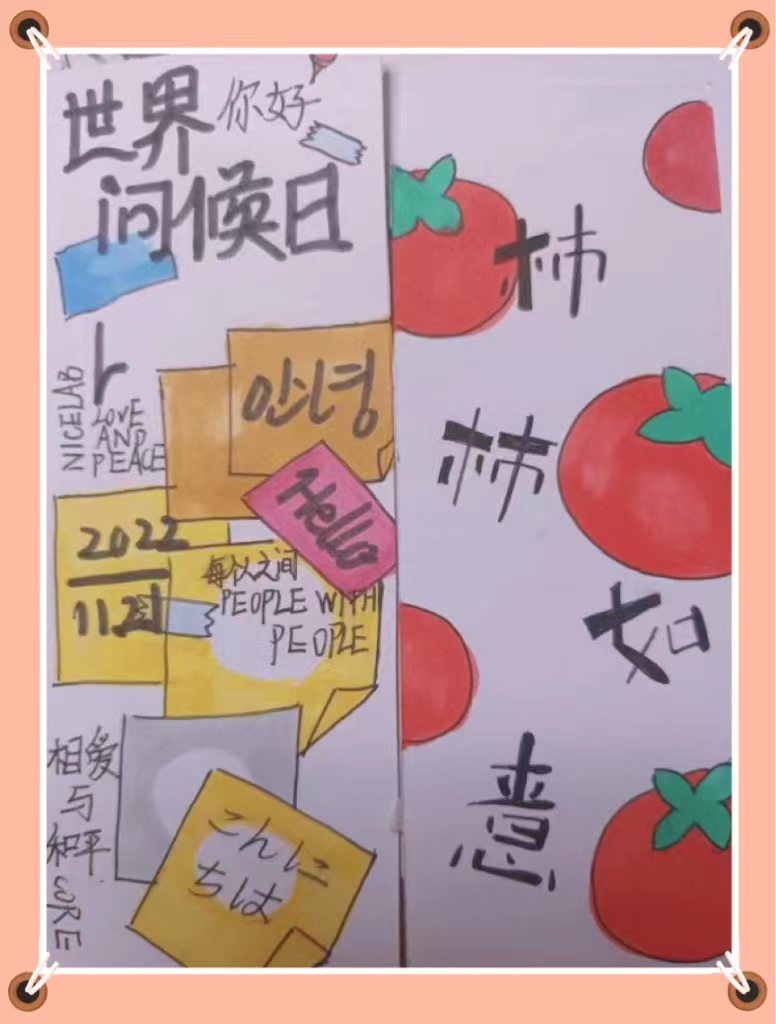 世界 你好
问候日
NICELAB
LOVE
AND
PEACE
안녕
Hello
2022
11.21
之间
PEOPLE WITH
PEOPLE
相爱
与
和平
こんに
ちは
柿
柿
如
意